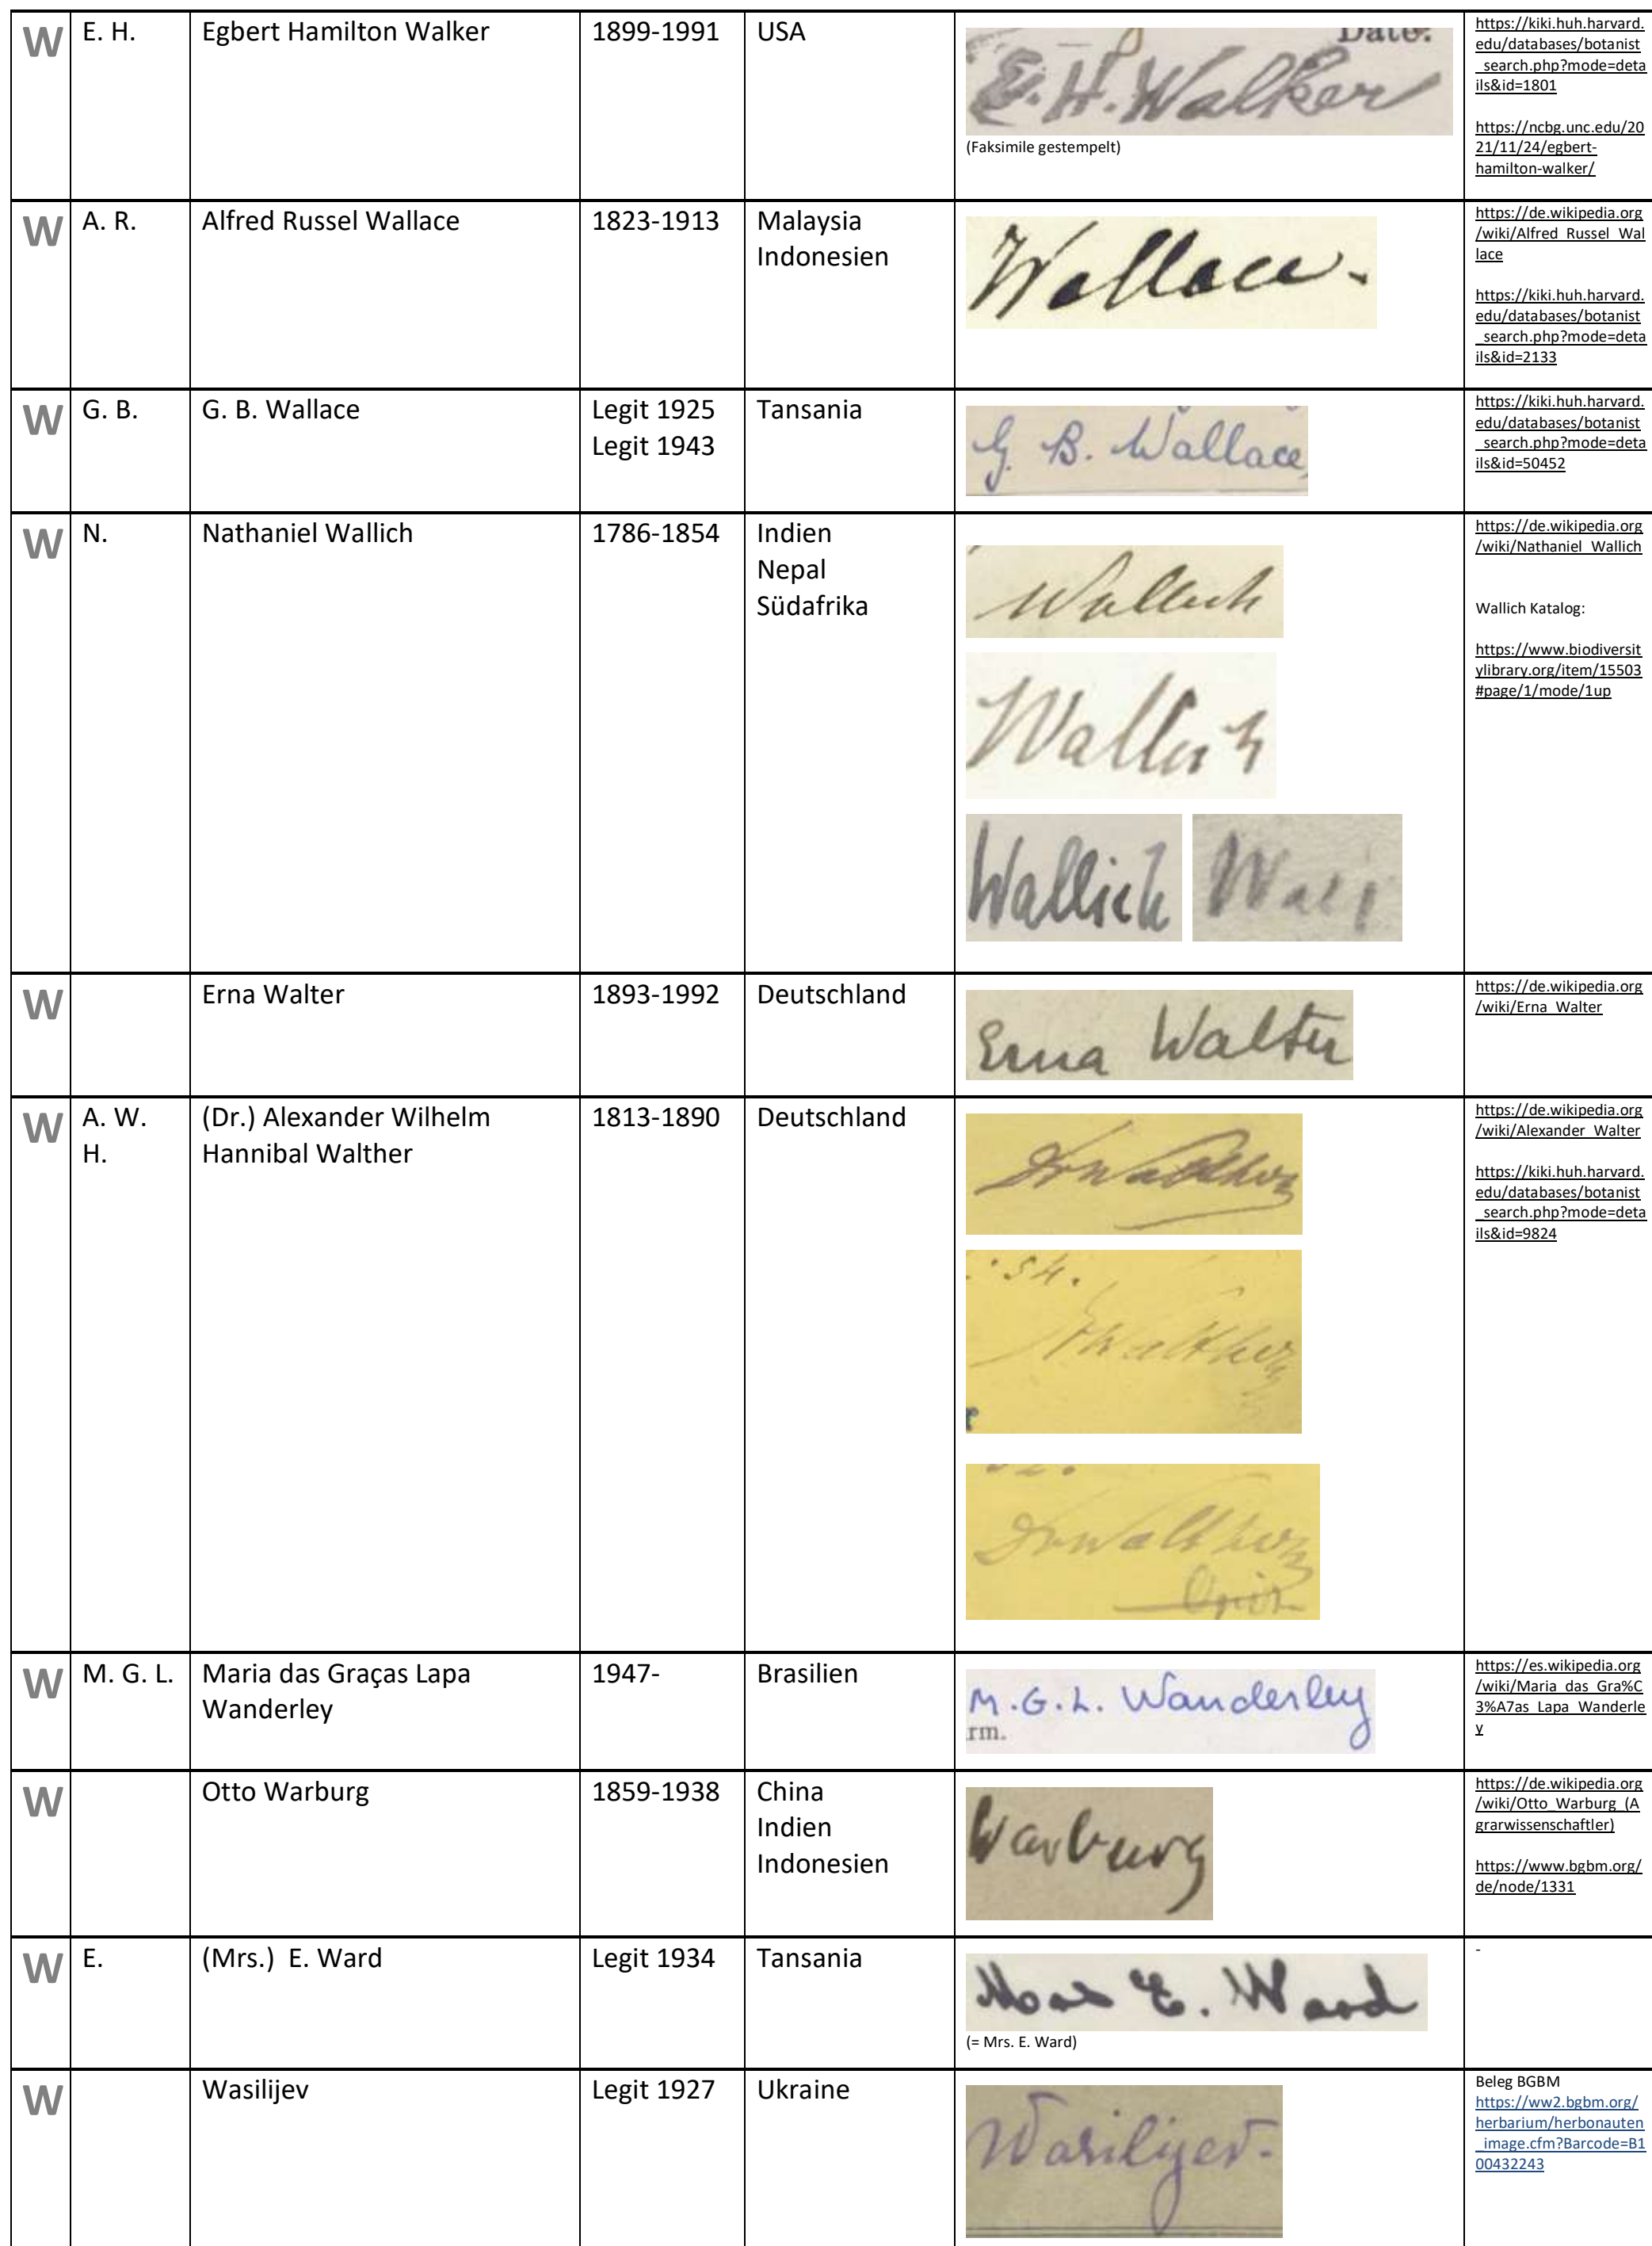 W E. H. Egbert Hamilton Walker 1899-1991 USA
Date:
E. H. Walker
(Faksimile gestempelt)
https://kiki.huh.harvard.
edu/databases/botanist
_search.php?mode=deta
ils&id=1801
https://ncbg.unc.edu/20
21/11/24/egbert-
hamilton-walker/
W A. R. Alfred Russel Wallace 1823-1913 Malaysia
Indonesien
Wallace.
https://de.wikipedia.org
/wiki/Alfred_Russel_Wal
lace
https://kiki.huh.harvard.
edu/databases/botanist
_search.php?mode=deta
ils&id=2133
W G. B. G. B. Wallace Legit 1925 Tansania
Legit 1943
G. B. Wallace
https://kiki.huh.harvard.
edu/databases/botanist
_search.php?mode=deta
ils&id=50452
W N. Nathaniel Wallich 1786-1854 Indien
Nepal
Südafrika
Wallich
Wallich
Wallich Wall
https://de.wikipedia.org
/wiki/Nathaniel_Wallich
Wallich Katalog:
https://www.biodiversit
ylibrary.org/item/15503
#page/1/mode/1up
W Erna Walter 1893-1992 Deutschland
Erna Walter
https://de.wikipedia.org
/wiki/Erna_Walter
W A. W. (Dr.) Alexander Wilhelm 1813-1890 Deutschland
H. Hannibal Walther
Dr Walther
54.
Dr Walther
Dr Walther
Opiz
https://de.wikipedia.org
/wiki/Alexander_Walter
https://kiki.huh.harvard.
edu/databases/botanist
_search.php?mode=deta
ils&id=9824
W M. G. L. Maria das Graças Lapa 1947- Brasilien
Wanderley
M. G. L. Wanderley
rm.
https://es.wikipedia.org
/wiki/Maria_das_Gra%C
3%A7as_Lapa_Wanderle
y
W Otto Warburg 1859-1938 China
Indien
Indonesien
Warburg
https://de.wikipedia.org
/wiki/Otto_Warburg_(A
grarwissenschaftler)
https://www.bgbm.org/
de/node/1331
W E. (Mrs.) E. Ward Legit 1934 Tansania -
Mrs E. Ward
(= Mrs. E. Ward)
W Wasilijev Legit 1927 Ukraine
Wasilijev.
Beleg BGBM
https://ww2.bgbm.org/
herbarium/herbonauten
_image.cfm?Barcode=B1
00432243